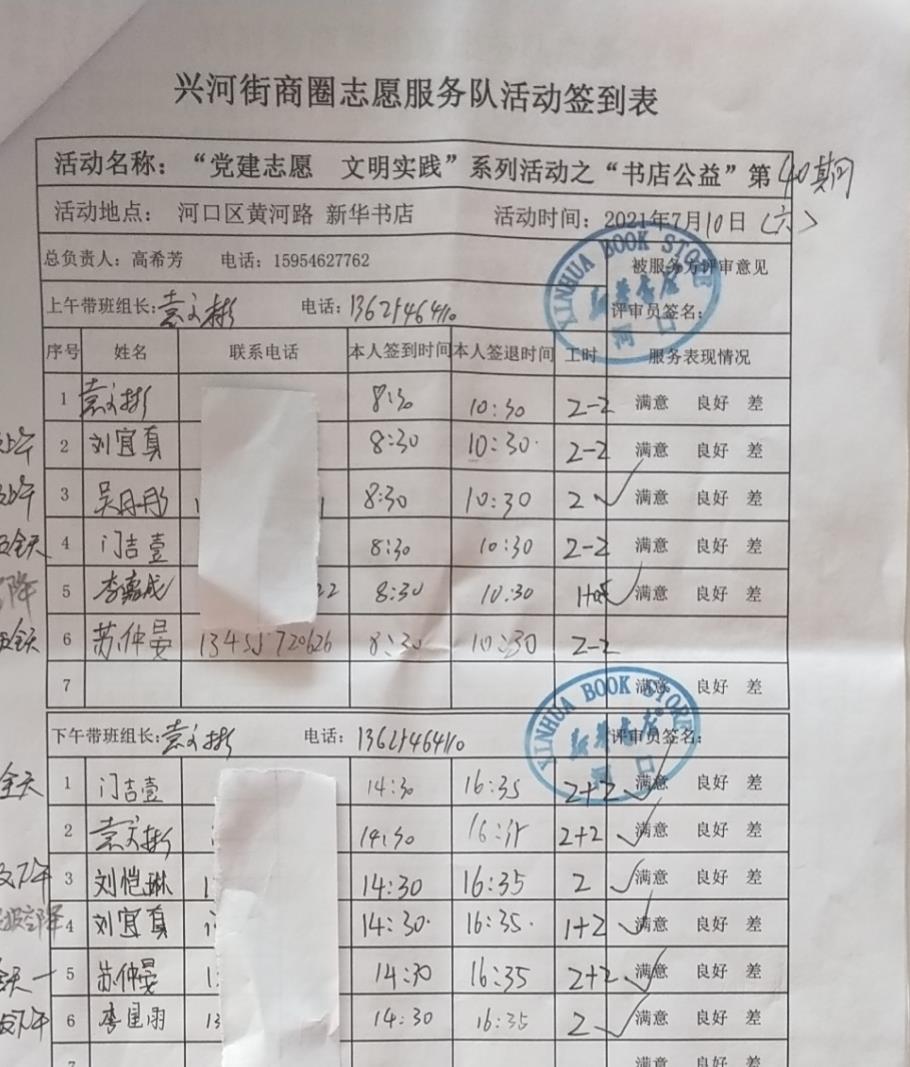 兴河街商圈志愿服务队活动签到表
活动名称：“党建志愿 文明实践”系列活动之“书店公益”第40期
活动地点： 河口区黄河路 新华书店 活动时间：2021年7月10日（六）
总负责人：高希芳 电话：15954627762 被服务方评审意见
上午带班组长：袁文彬 电话： 评审员签名：
XINHUA BOOK STORE
新华书店
河口
序号 姓名 联系电话 本人签到时间 本人签退时间 工时 服务表现情况
1 袁文彬 8:30 10:30 2-2 满意 良好 差
上午
2 刘宜真 8:30 10:30 2-2 满意 良好 差
3 吴丹彤 8:30 10:30 2 ✓ 满意 良好 差
全天 4 门吉壹 8:30 10:30 2-2 满意 良好 差
降 5 李嘉成 22 8:30 10:30 ✓ 满意 良好 差
全天 6 苏仲晏 13455720626 8:30 10:30 2-2
7 满意 良好 差
下午带班组长：袁文彬 电话： 评审员签名：
XINHUA BOOK STORE
新华书店
河口
全天 1 门吉壹 14:30 16:35 2+2 ✓ 满意 良好 差
2 袁文彬 14:30 16:35 2+2 ✓ 满意 良好 差
下午 3 刘恺琳 1 14:30 16:35 2 ✓ 满意 良好 差
4 刘宜真 14:30 16:35 1+2 ✓ 满意 良好 差
全天 5 苏仲晏 13 14:30 16:35 2+2 ✓ 满意 良好 差
下午 6 13 14:30 16:35 2 ✓ 满意 良好 差
7 满意 良好 差